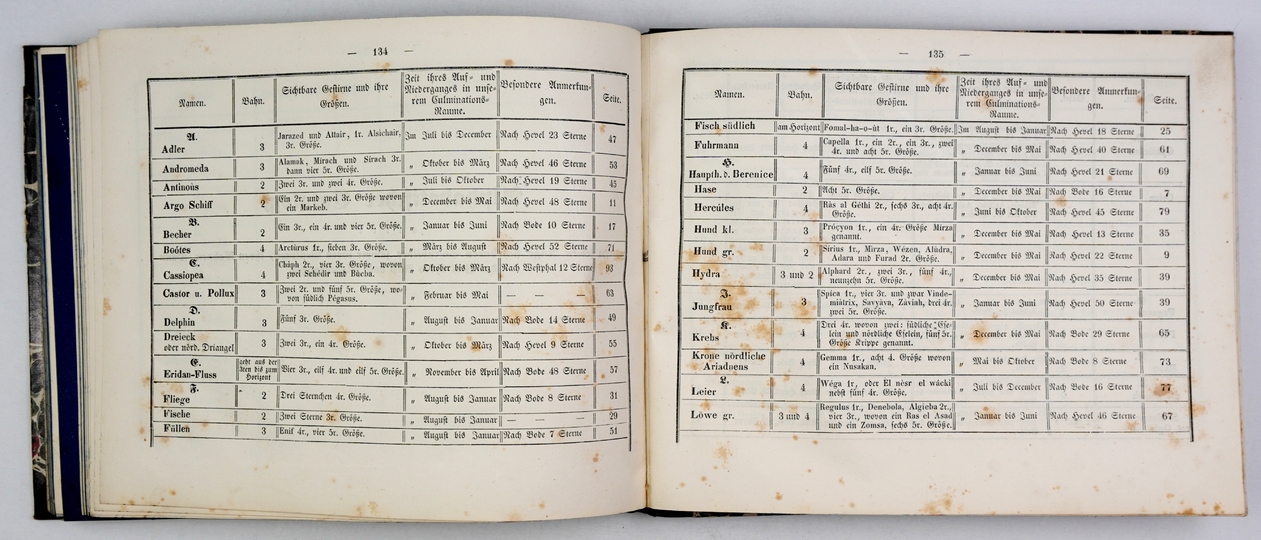 — 134 —
Namen. Bahn. Sichtbare Gestirne und ihre Größen. Zeit ihres Auf- und Niederganges in unserem Culminations-Raume. Besondere Anmerkungen. Seite.
A.
Adler 3 Jarazed und Attair, 1r. Alsichair, 3r. Größe. Im Juli bis December Nach Hevel 23 Sterne 47
Andromeda 3 Alamak, Mirach und Sirach 3r. dann vier 5r. Größe. „ Oktober bis März Nach Hevel 46 Sterne 53
Antinoüs 2 Zwei 3r. und zwei 4r. Größe. „ Juli bis Oktober Nach Hevel 19 Sterne 45
Argo Schiff 2 Ein 2r. und zwei 3r. Größe wovon ein Markeb. „ December bis Mai Nach Hevel 48 Sterne 11
B.
Becher 2 Ein 3r., ein 4r. und vier 5r. Größe. „ Januar bis Juni Nach Bode 10 Sterne 17
Boótes 4 Arctúrus 1r., sieben 3r. Größe. „ März bis August Nach Hevel 52 Sterne 71
C.
Cassiopea 4 Cháph 2r., vier 3r. Größe, wovon zwei Schédir und Búcba. „ Oktober bis März Nach Westphal 12 Sterne 93
Castor u. Pollux 3 Zwei 2r. und fünf 5r. Größe, wovon südlich Pégasus. „ Februar bis Mai — — — 63
D.
Delphin 3 Fünf 3r. Größe. „ August bis Januar Nach Bode 14 Sterne 49
Dreieck oder nörd. Driangel 3 Zwei 3r., ein 4r. Größe. „ Oktober bis März Nach Hevel 9 Sterne 55
E.
Eridan-Fluss geht aus der 3ten bis zum Horizont Vier 3r., eilf 4r. und eilf 5r. Größe. „ November bis April Nach Bode 48 Sterne 57
F.
Fliege 2 Drei Sternchen 4r. Größe. „ August bis Januar Nach Bode 8 Sterne 31
Fische 2 Zwei Sterne 3r. Größe. „ August bis Januar — — — 29
Füllen 3 Enif 4r., vier 5r. Größe. „ August bis Januar Nach Bode 7 Sterne 51
— 135 —
Namen. Bahn. Sichtbare Gestirne und ihre Größen. Zeit ihres Auf- und Niederganges in unserem Culminations-Raume. Besondere Anmerkungen. Seite.
Fisch südlich am Horizont Fomal-ha-o-út 1r., ein 3r. Größe. Im August bis Januar Nach Hevel 18 Sterne 25
Fuhrmann 4 Capella 1r., ein 2r., ein 3r., zwei 4r. und acht 5r. Größe. „ December bis Mai Nach Hevel 40 Sterne 61
H.
Haupth. d. Berenice 4 Fünf 4r., eilf 5r. Größe. „ Januar bis Juni Nach Hevel 21 Sterne 69
Hase 2 Acht 5r. Größe. „ December bis Mai Nach Bode 16 Sterne 7
Hercúles 4 Rás al Géthi 2r., sechs 3r., acht 4r. Größe. „ Juni bis Oktober Nach Hevel 45 Sterne 79
Hund kl. 3 Prócyon 1r., ein 4r. Größe Mirza genannt. „ December bis Mai Nach Hevel 13 Sterne 35
Hund gr. 2 Sirius 1r., Mirza, Wézen, Alúdra, Adara und Furad 2r. Größe. „ December bis Mai Nach Hevel 22 Sterne 9
Hydra 3 und 2 Alphard 2r., zwei 3r., fünf 4r., neunzehn 5r. Größe. „ December bis Mai Nach Hevel 35 Sterne 39
J.
Jungfrau 3 Spica 1r., vier 3r. und zwar Vindemiátrix, Savyáva, Záviah, drei 4r. zwei 5r. Größe. „ Januar bis Juni Nach Hevel 50 Sterne 39
K.
Krebs 4 Drei 4r. wovon zwei: südliche Eselein und nördliche Eselein, fünf 5r. Größe Krippe genannt. „ December bis Mai Nach Bode 29 Sterne 65
Krone nördliche Ariadnens 4 Gemma 1r., acht 4. Größe wovon ein Nusakan. „ Mai bis Oktober Nach Bode 8 Sterne 73
L.
Leier 4 Wéga 1r, oder El nèsr el wácki nebst fünf 4r. Größe. „ Juli bis December Nach Bode 16 Sterne 77
Löwe gr. 3 und 4 Regulus 1r., Denebola, Algieba 2r., vier 3r., wovon ein Ras el Asad und ein Zomsa, sechs 5r. Größe. „ Januar bis Juni Nach Hevel 46 Sterne 67